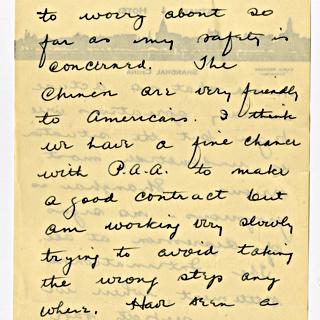 to worry about so
far as my safety is
concerned. The
Chinese are very friendly
to Americans. I think
we have a fine chance
with P.A.A. to make
a good contract but
am working very slowly
trying to avoid taking
the wrong step any
where. Have seen a
HOTEL
SHANGHAI, CHINA